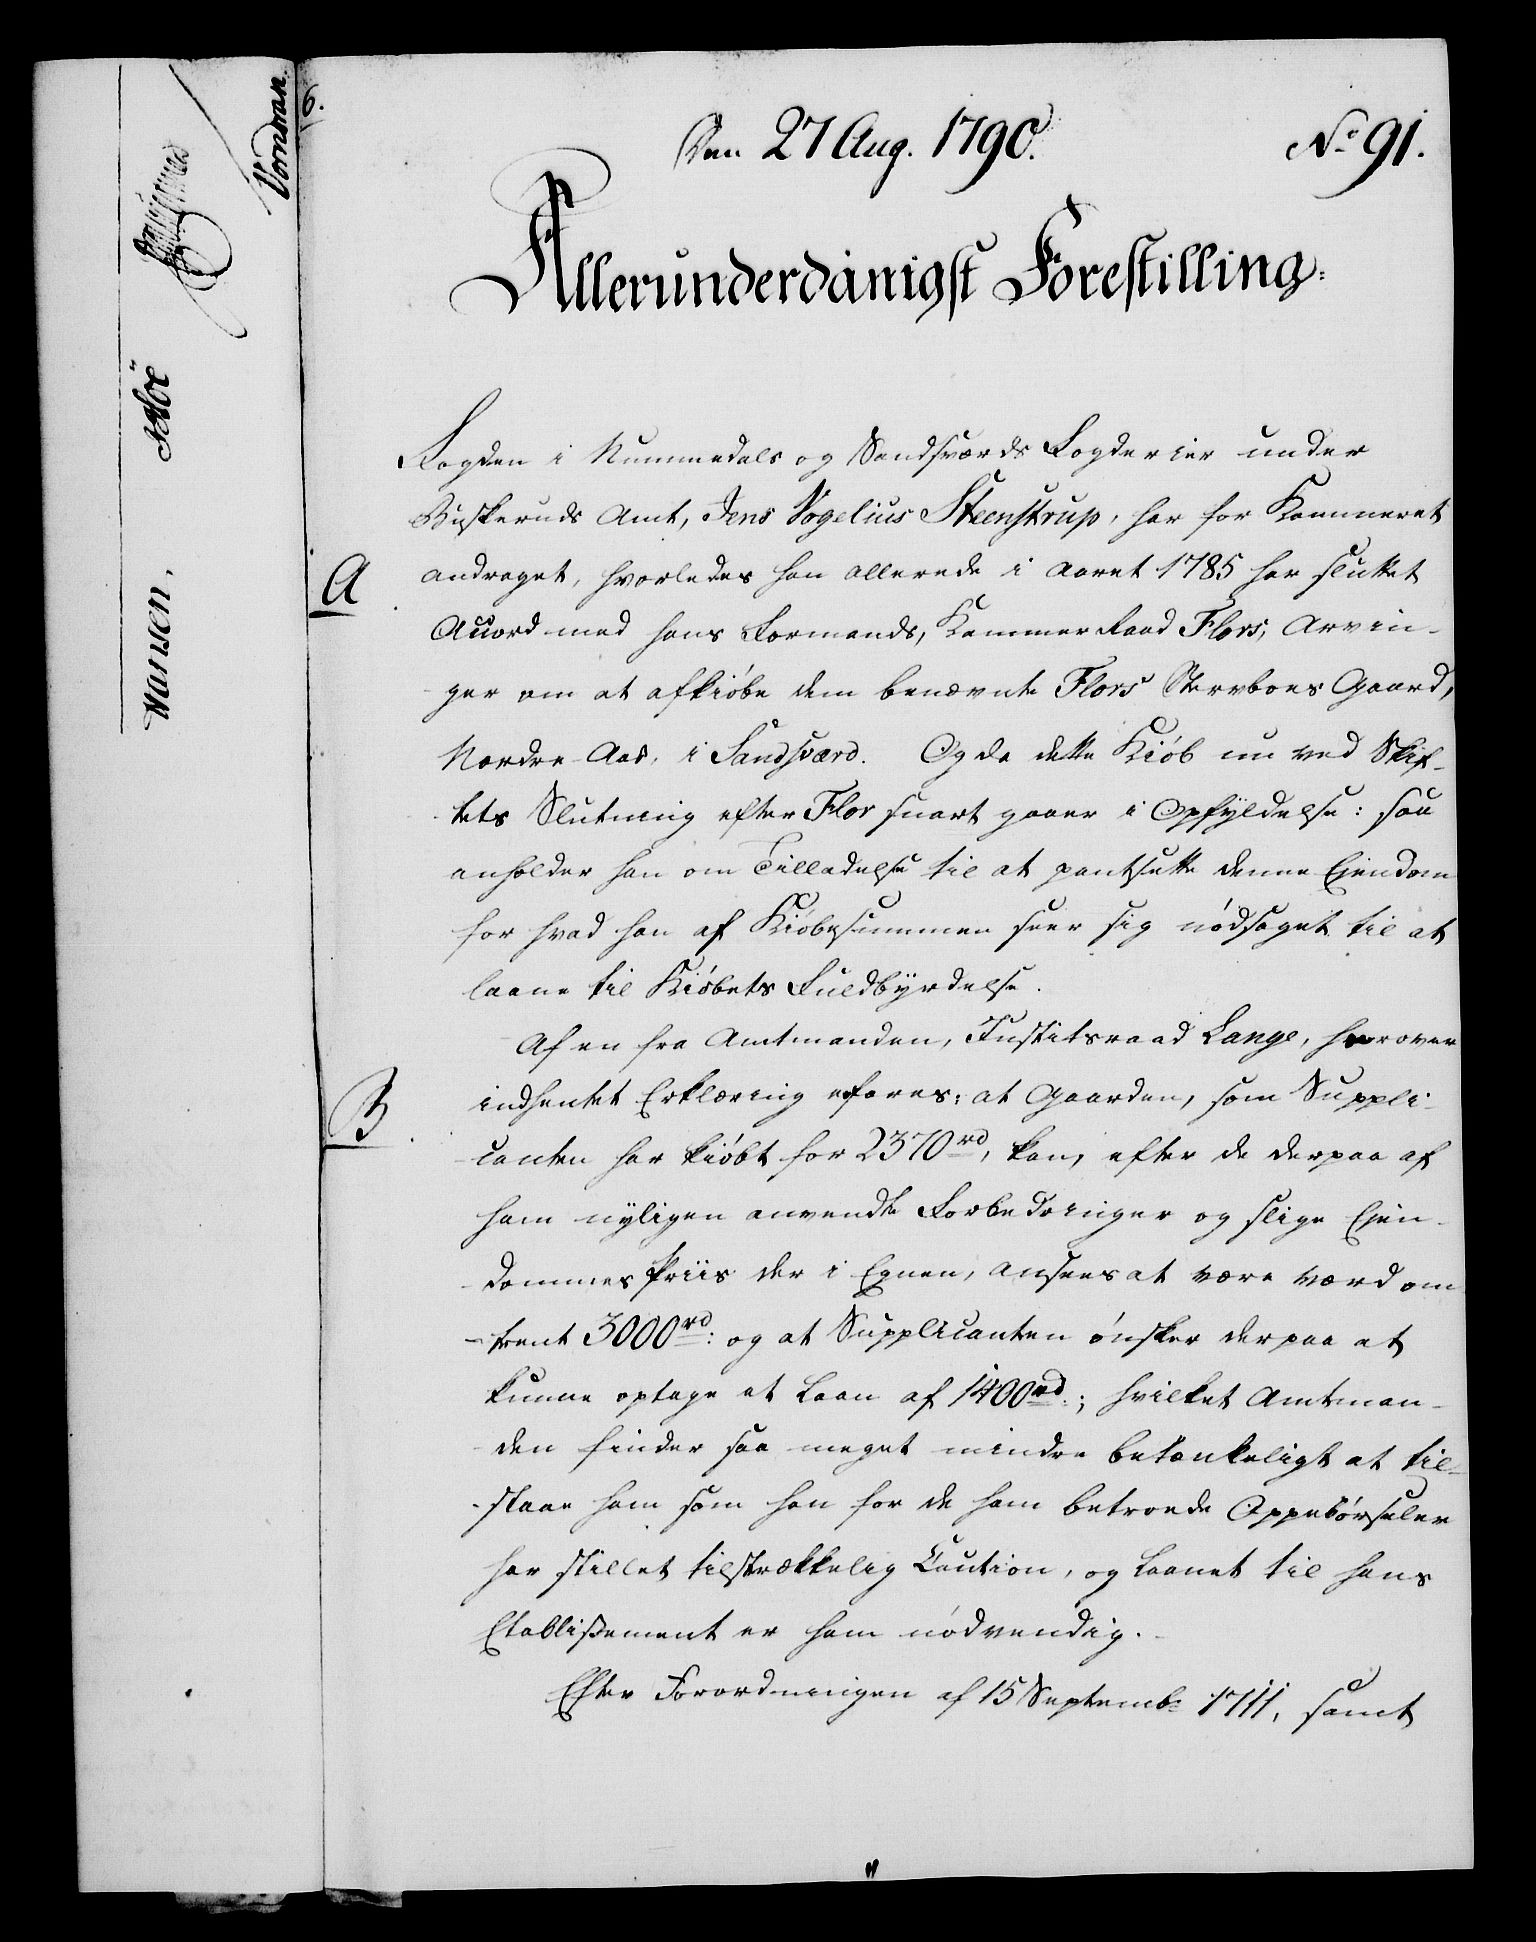 Den 27 Aug. 1790.
No 91.
Allerunderdanigst Forestilling.
Fogden i Nummedals og Sandsværds Fogderier under
Buskeruds Amt, Jens Vogelius Steenstrup, har for Kammeret
A
andraget, hvorledes han allerede i Aaret 1785 har sluttet
Accord med hans Formands, Kammer Raad Flors, Arvin-
ger om at afkiöbe dem benævnte Flors Sterboes Gaard,
Nordre Aas, i Sandsværd. Og da dette Kiöb nu ved Skif-
tets Slutning efter Flor snart gaaer i Opfyldelse: saa
anholder han om Tilladelse til at pantsætte denne Eiendom
for hvad han af Kiöbesummen seer sig nödsaget til at
laane til Kiöbets Fuldbyrdelse.
Af en fra Amtmanden, Justitsraad Lange, herover
B
indhentet Erklæring erfares: at Gaarden, som Suppli-
canten har kiöbt for 2370 rd, kan, efter de derpaa af
ham nyligen anvendte Forbedringer og slige Eien-
dommes Priis der i Egnen, ansees at være værd om-
trent 3000 rd: og at Supplicanten önsker derpaa at
kunne optage et Laan af 1400 rd.; hvilket Amtman-
den finder saa meget mindre betænkeligt at til-
staae ham som han for de ham betroede Oppebörseler
har stillet tilstrækkelig Caution, og Laanet til hans
Etablißement er ham nödvendig.
Efter Forordningen af 15 Septembr 1711, samt
Vordman
Möe
Hansen.